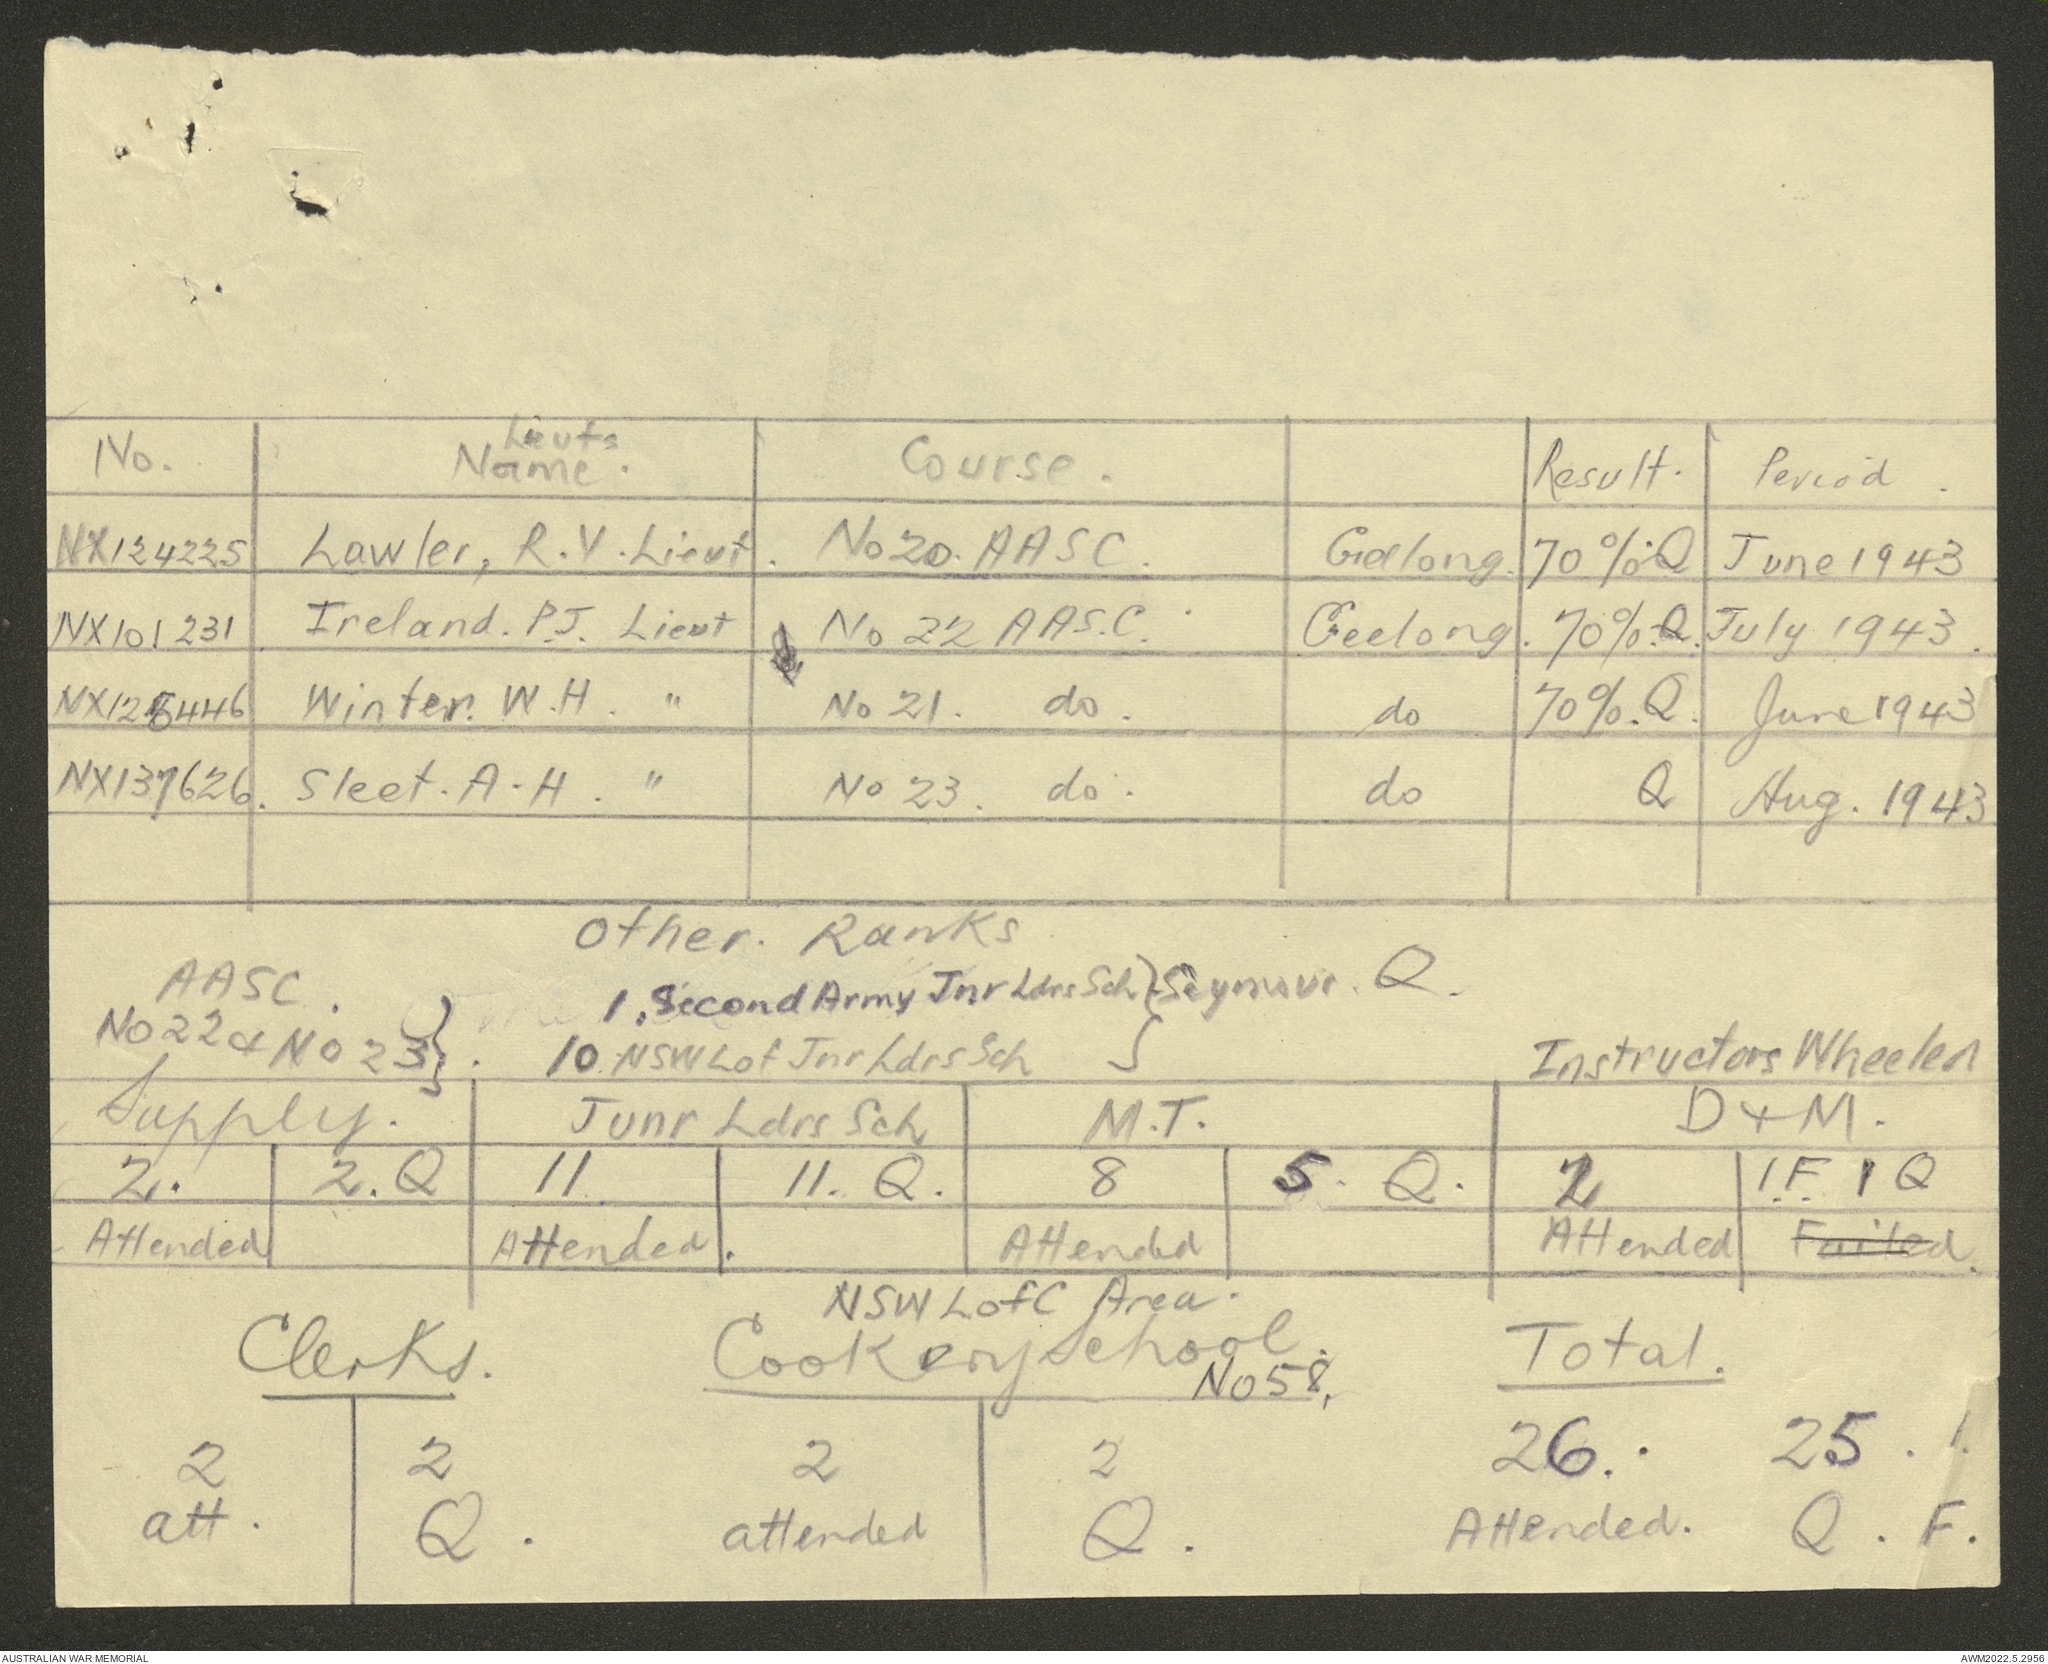 Lieuts
No. Name. Course. Result. Period.
NX124225 Lawler, R.V. Lieut. No 20. AASC. Geelong. 70%.Q June 1943
NX101231 Ireland. P.J. Lieut No 22 AAS.C. Geelong. 70%.Q. July 1943.
NX125446 Winter. W.H. " No 21. do. do 70%.Q. June 1943
NX137626. Sleet. A.H. " No 23. do. do Q Aug. 1943
Other. Ranks
AASC. 1. Second Army Jnr Ldrs Sch } Seymour. Q.
No 22 & No 23 }. 10. NSW L of Jnr Ldrs Sch } Instructors Wheeled
Supply. Junr Ldrs Sch M.T. D & M.
2. 2. Q 11. 11. Q. 8 5. Q. 2 1.F. 1 Q
Attended Attended. Attended Attended Failed.
NSW L of C Area.
Clerks. Cookery School. Total.
No 58.
2 2 2 2 26. 25. 1.
att. Q. attended Q. Attended. Q. F.
AUSTRALIAN WAR MEMORIAL AWM2022.5.2956